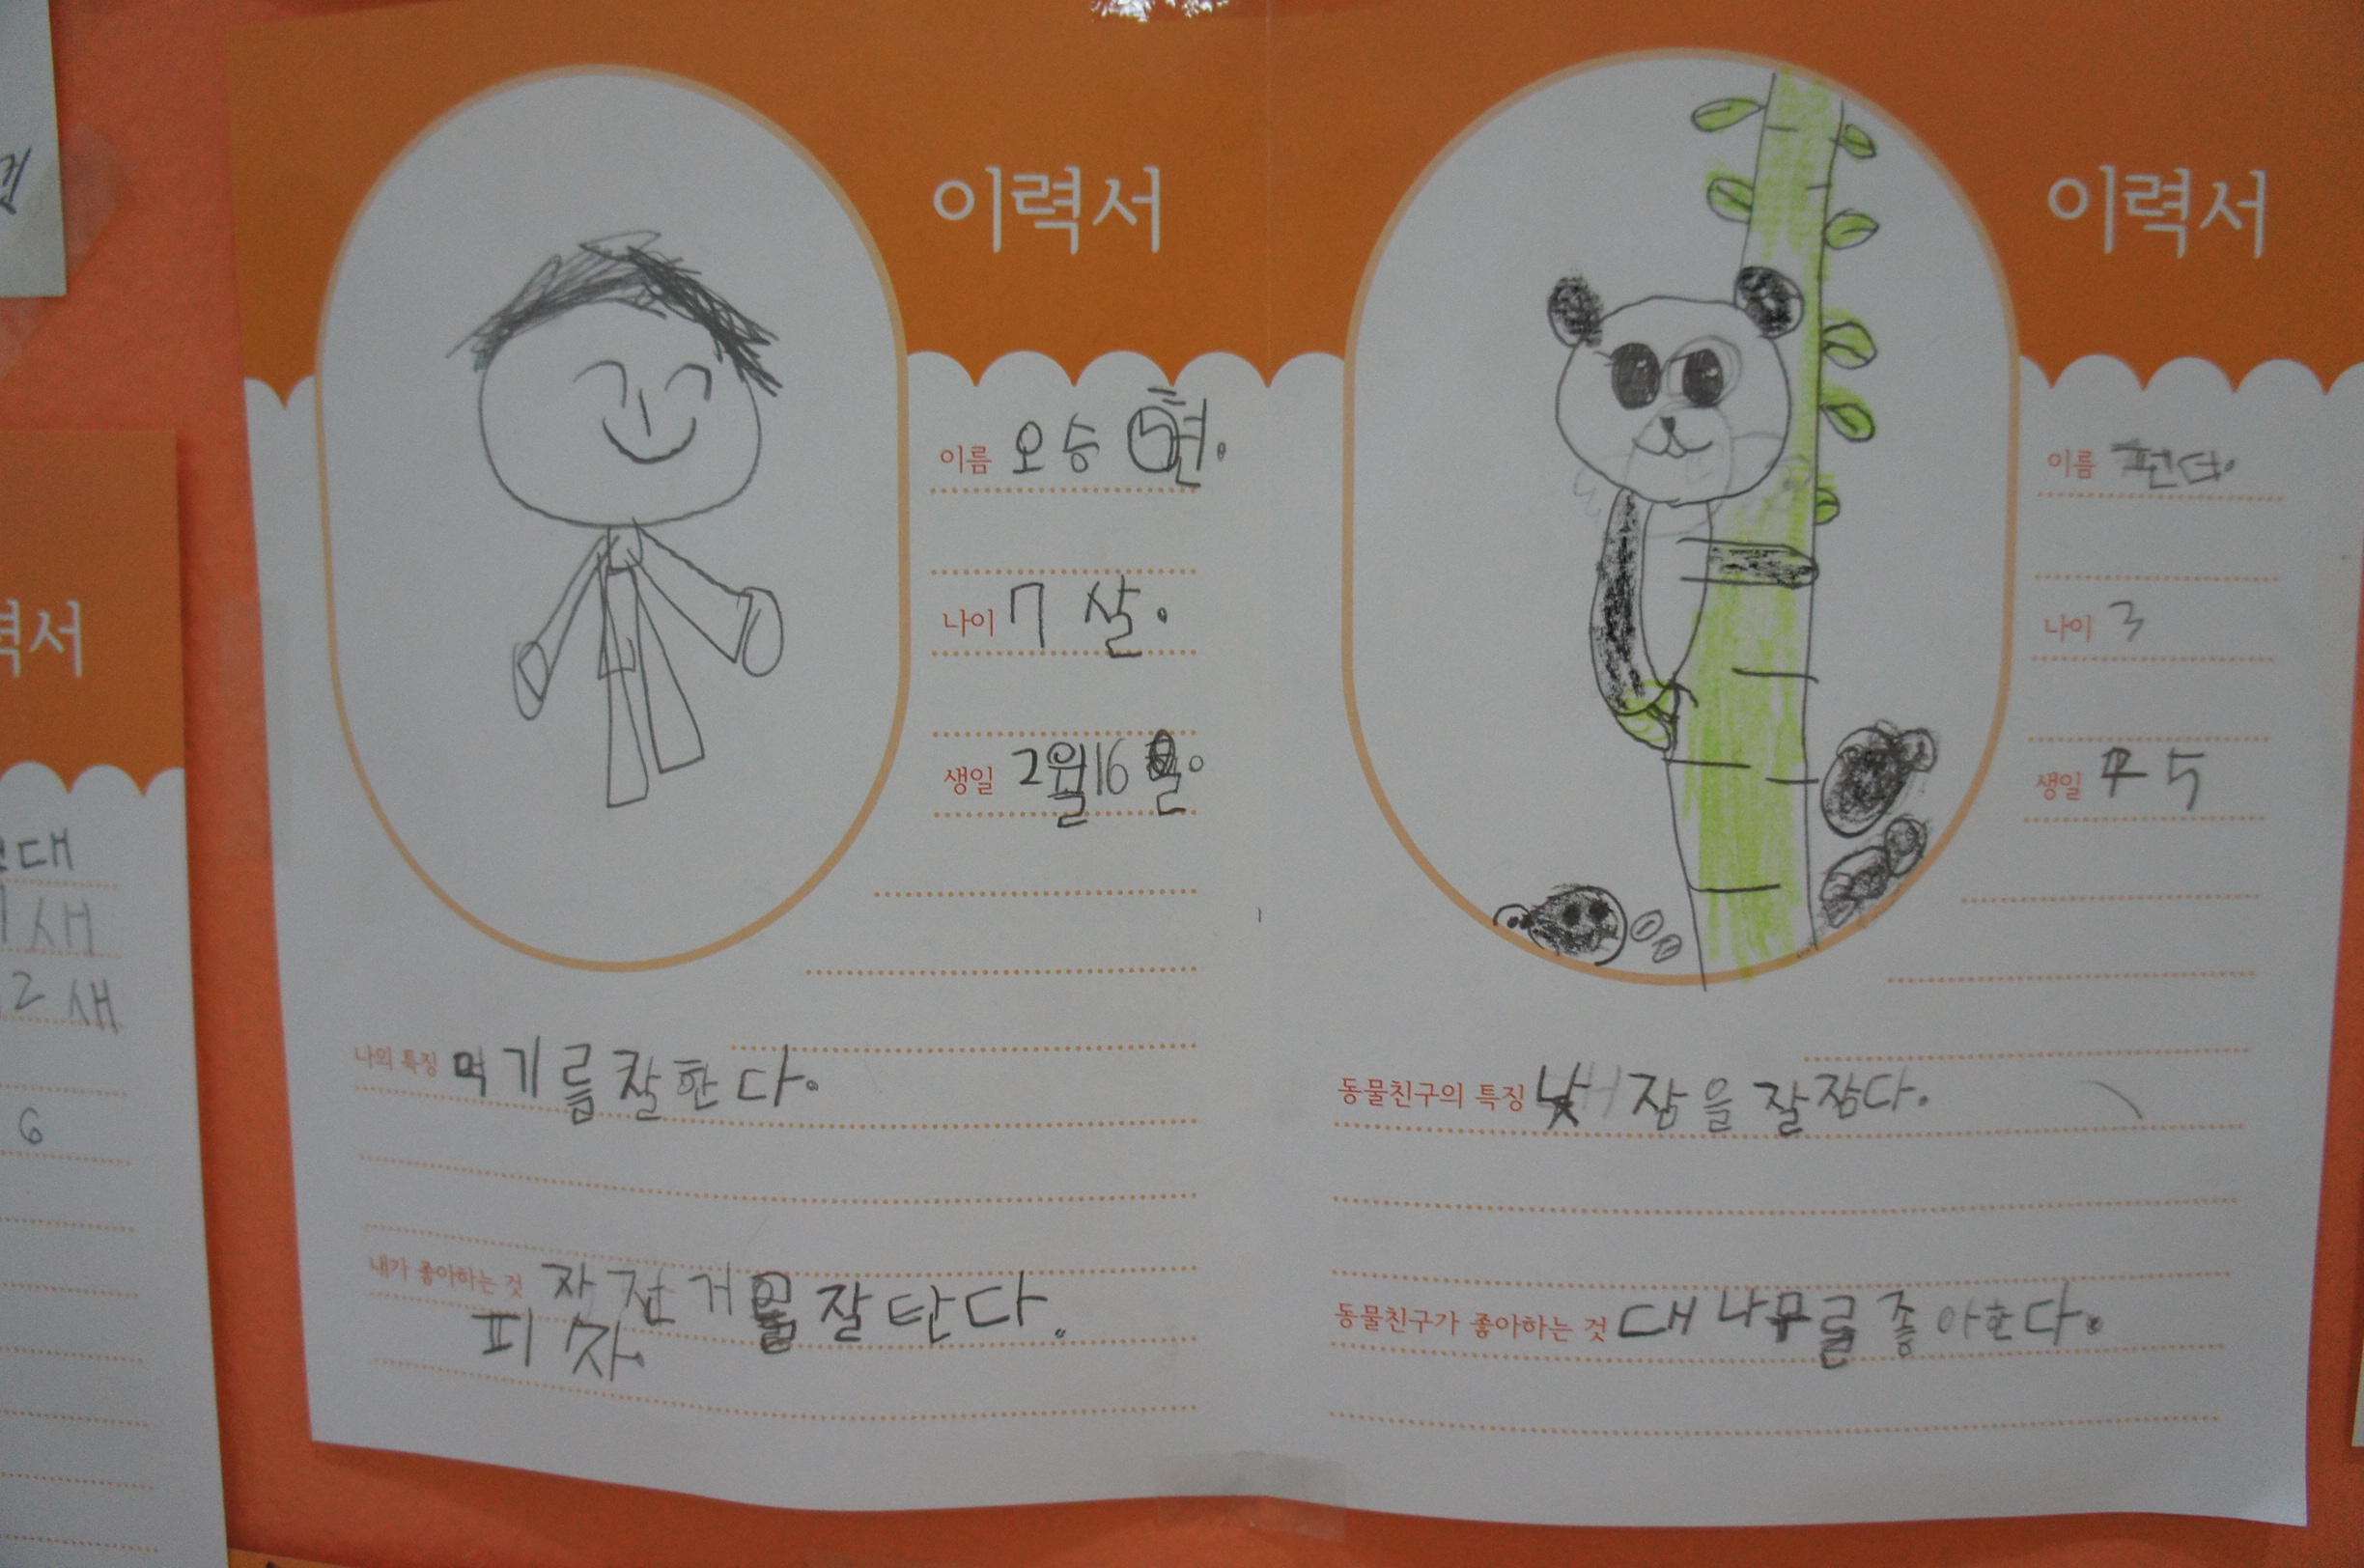 이력서
이름 오승현.
나이 7 살.
생일 2월16일.
나의 특징 먹기를잘한다.
내가 좋아하는 것 자전거를잘탄다.
피자.
이력서
이름 펜더.
나이 3
생일 7 5
동물친구의 특징 낮잠을잘잠다.
동물친구가 좋아하는 것 대나무를좋아한다.
력서
대
새
2 새
6